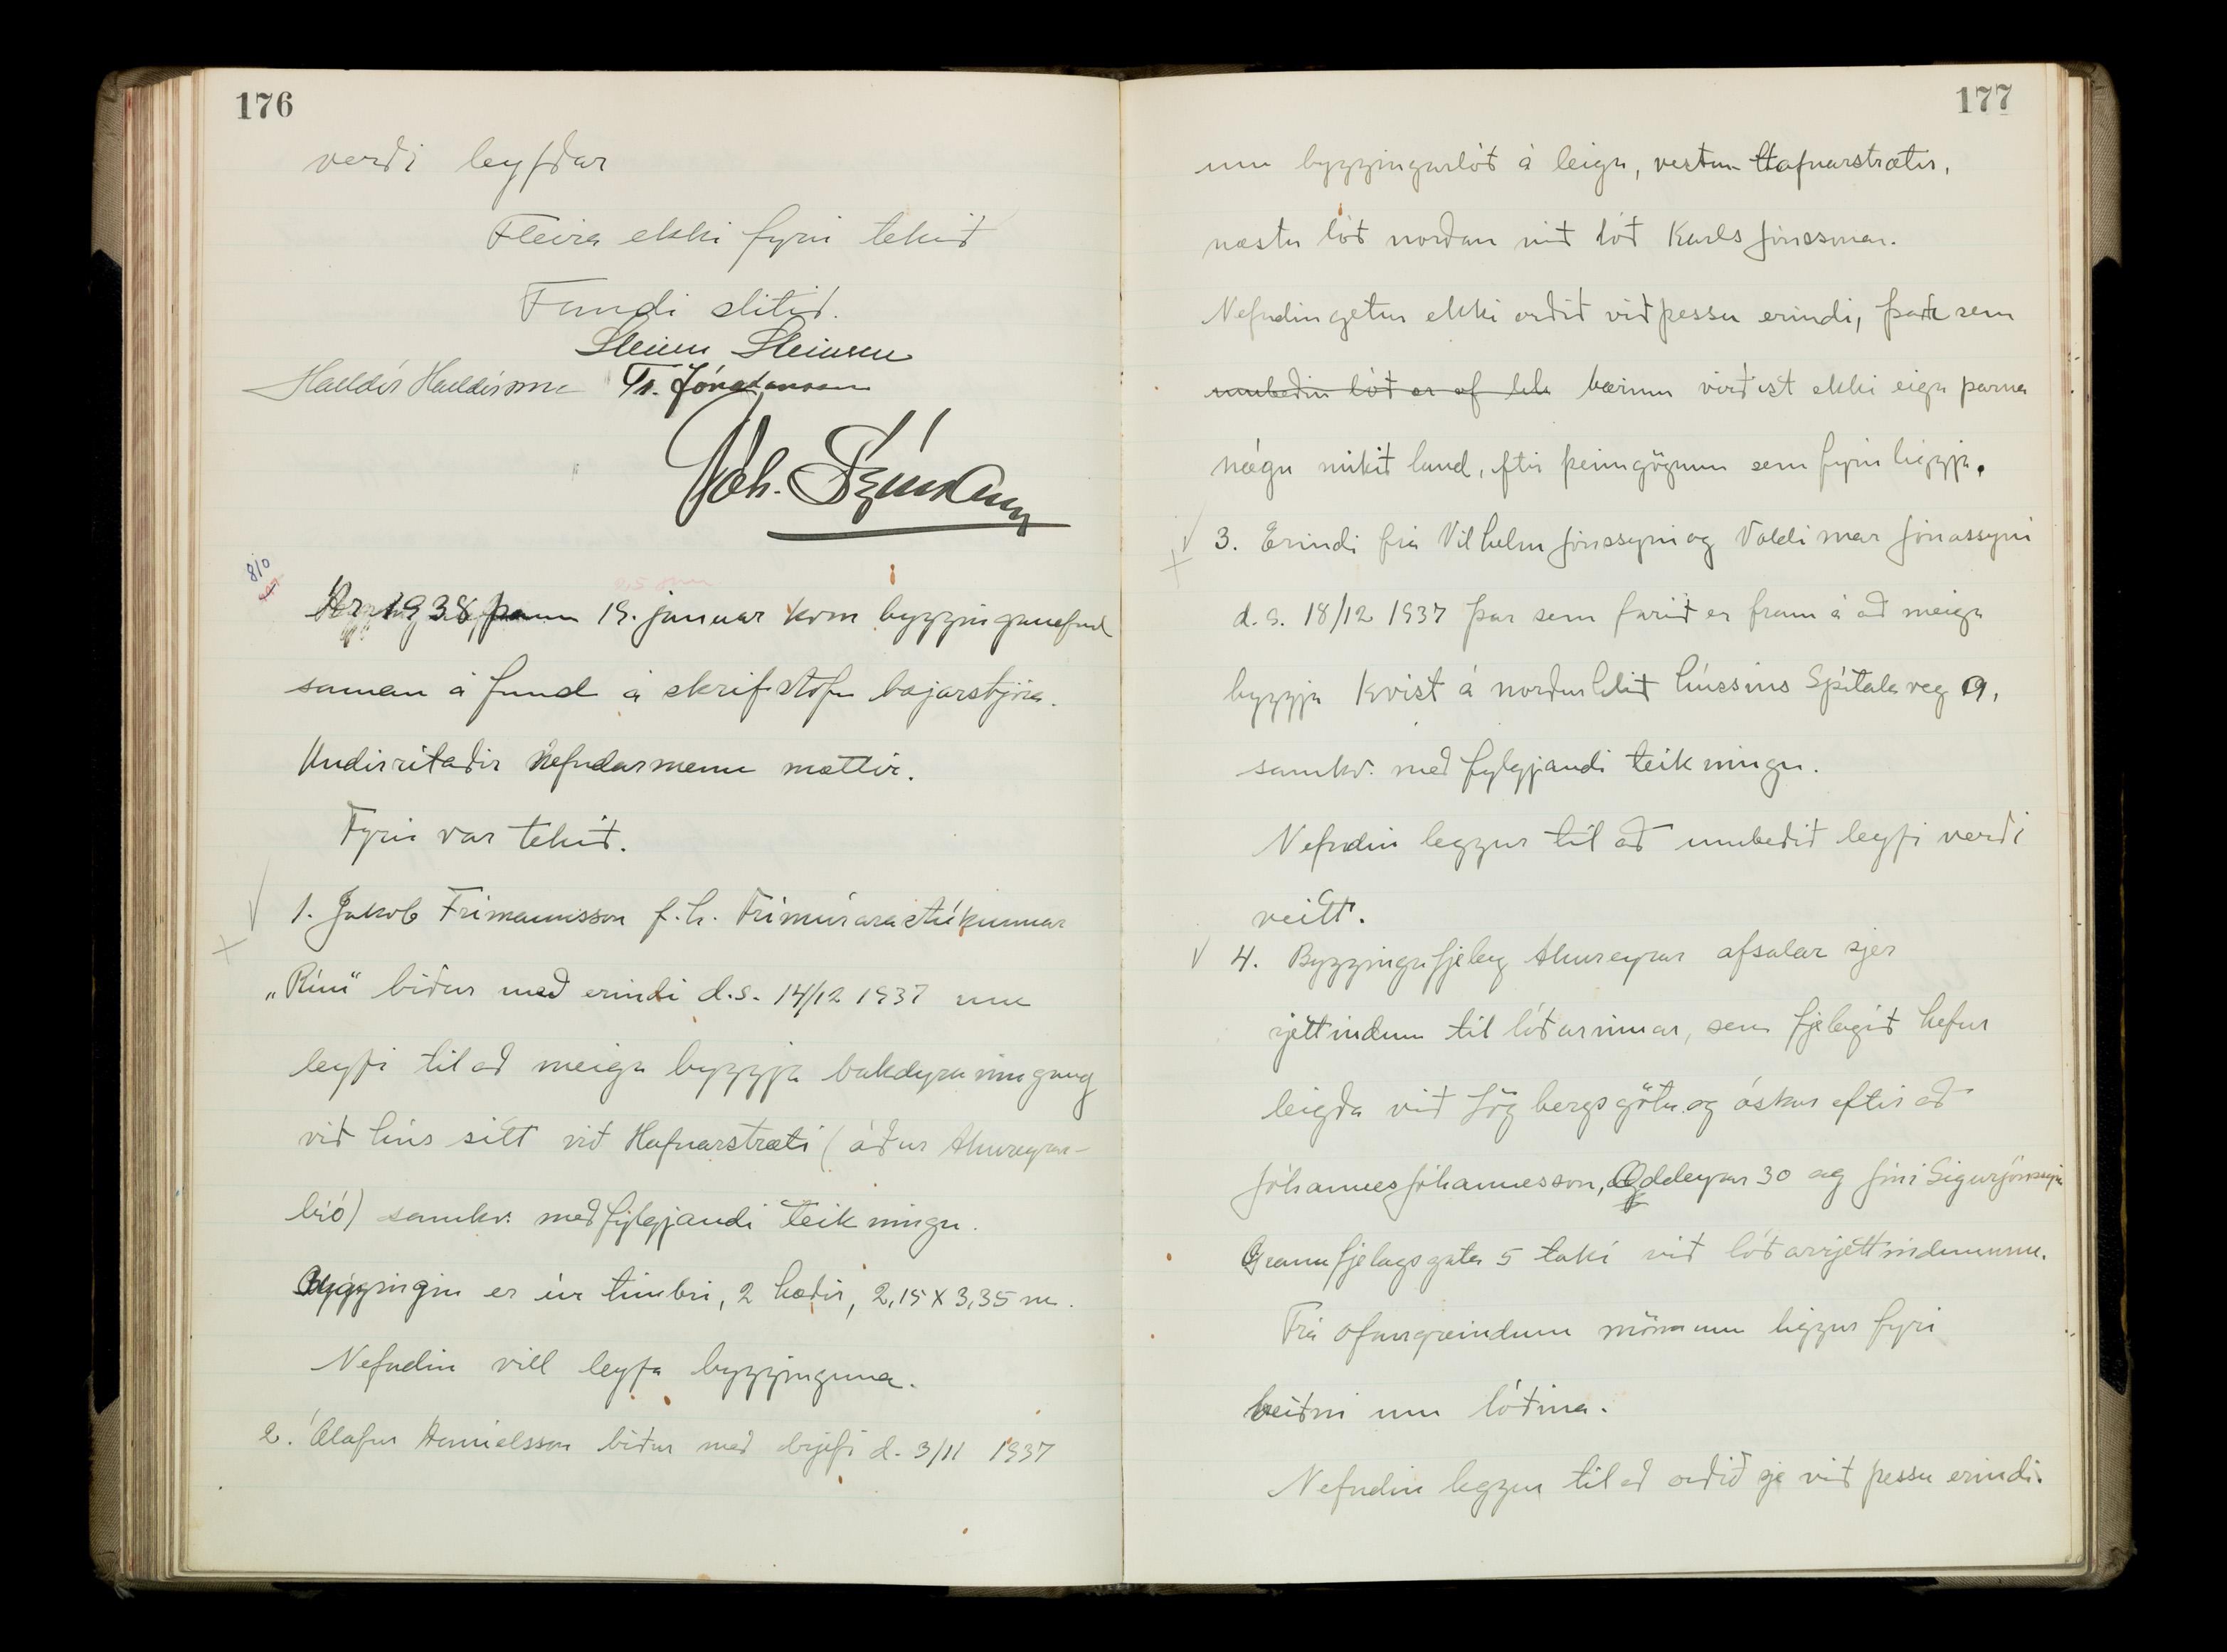 176
verði leyfðar
Fleira ekki fyrir tekið
Fundi slitið.
Steinn Steinsen
Halldór Halldórsson Tr. Jónatansson
Jóh.
810
Ár 1938, þann 19. januar kom bygginganefnd
saman á fund á skrifstofu bæjarstjóra.
Undirritaðir Nefndarmenn mættir.
Fyrir var tekið.
1. Jakob Frimannsson f.h. Frímúrarastúkunnar
„Rún“ biður með erindi d.s. 14/12 1937 um
leyfi til að meiga byggja bakdyra inngang
við hús sitt við Hafnarstræti (áður Akureyrar-
bíó) samkv. meðfylgjandi teikningu.
Byggingin er úr timbri, 2 hæðir, 2,15 X 3,35 m.
Nefndin vill leyfa bygginguna.
2. Ólafur Daníelsson biður með brjefi d. 3/11 1937
177
um byggingarlóð á leigu, vestan Hafnarstrætis,
næstu lóð norðan við lóð Karls Jónssonar.
Nefndin getur ekki orðið við þessu erindi, þar sem
umbeðin lóð er of bærinn virðist ekki eiga þarna
nægu mikið land, eftir þeim gögnum sem fyrir liggja.
3. Erindi frá Vilhelm Jónssyni og Valdimar Jónassyni
d.s. 18/12 1937 þar sem farið er fram á að meiga
byggja kvist á norðurhlið hússins Spítalaveg 9,
samkv. meðfylgjandi teikningu.
Nefndin leggur til að umbeðið leyfi verði
veitt.
4. Byggingafjelag Akureyrar afsalar sjer
rjettindum til lóðarinnar, sem fjelagið hefur
leigða við Lögbergsgötu og óskar eftir að
Jóhannes Jóhannesson, Oddeyrar 30 og Jóni Sigurjónssyni
Grannfjelagsgata 5 taki við lóðarrjettindunum.
Frá ofangreindum mönnum liggur fyrir
beiðni um lóðina.
Nefndin leggur til að orðið sje við þessu erindi.